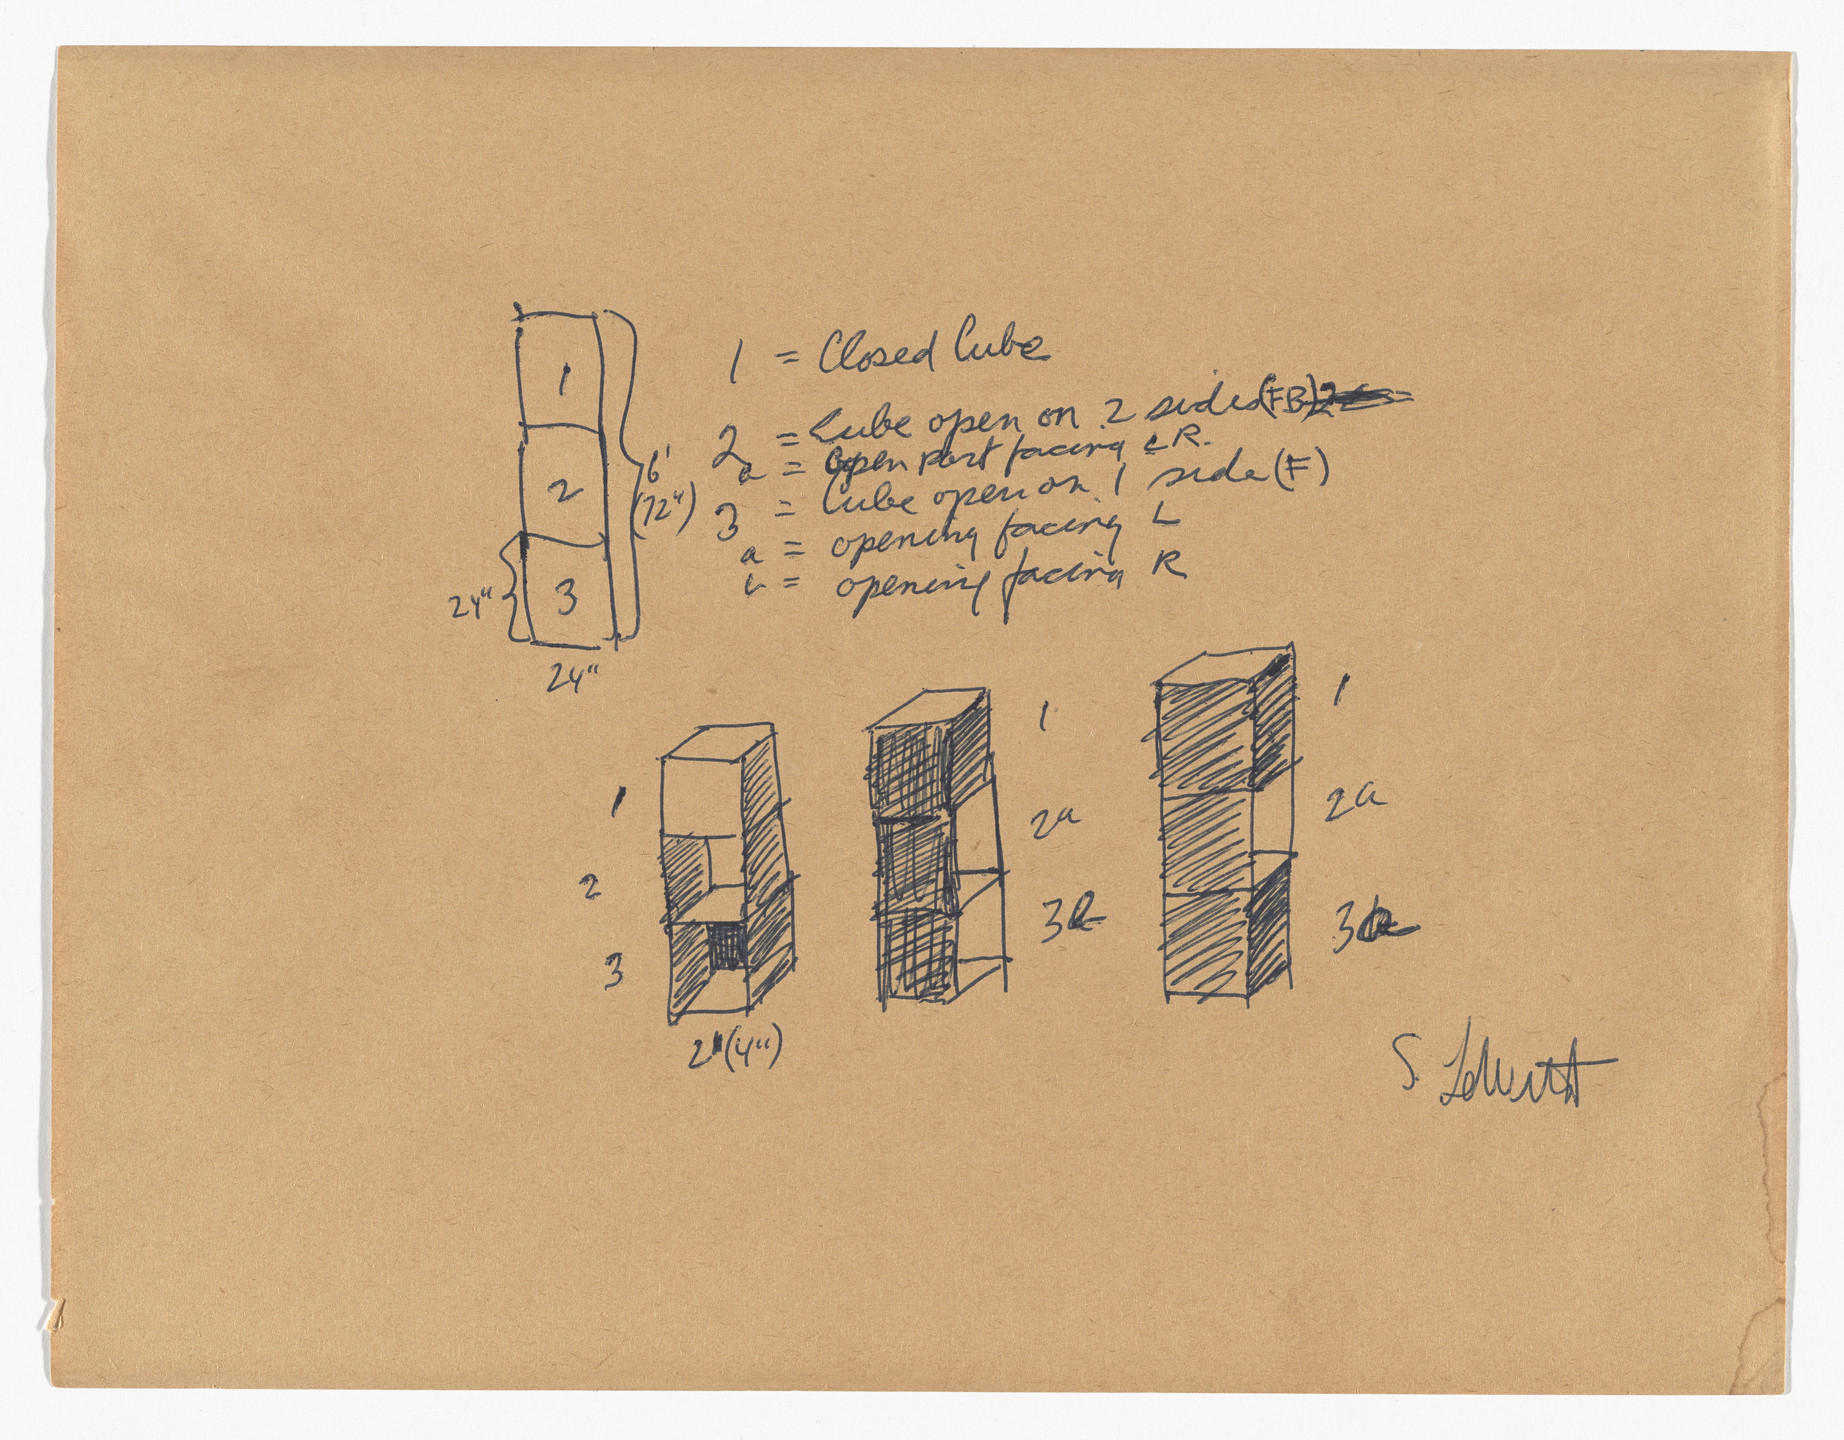 1
2
3
6'
(72")
24"
24"
1 = Closed Cube
2 = Cube open on 2 sides (FB)
a = Open part facing LR.
3 = Cube open on 1 side (F)
a = opening facing L
b = opening facing R
1
2
3
2"(4")
1
2a
3b
1
2a
3
S. LeWitt